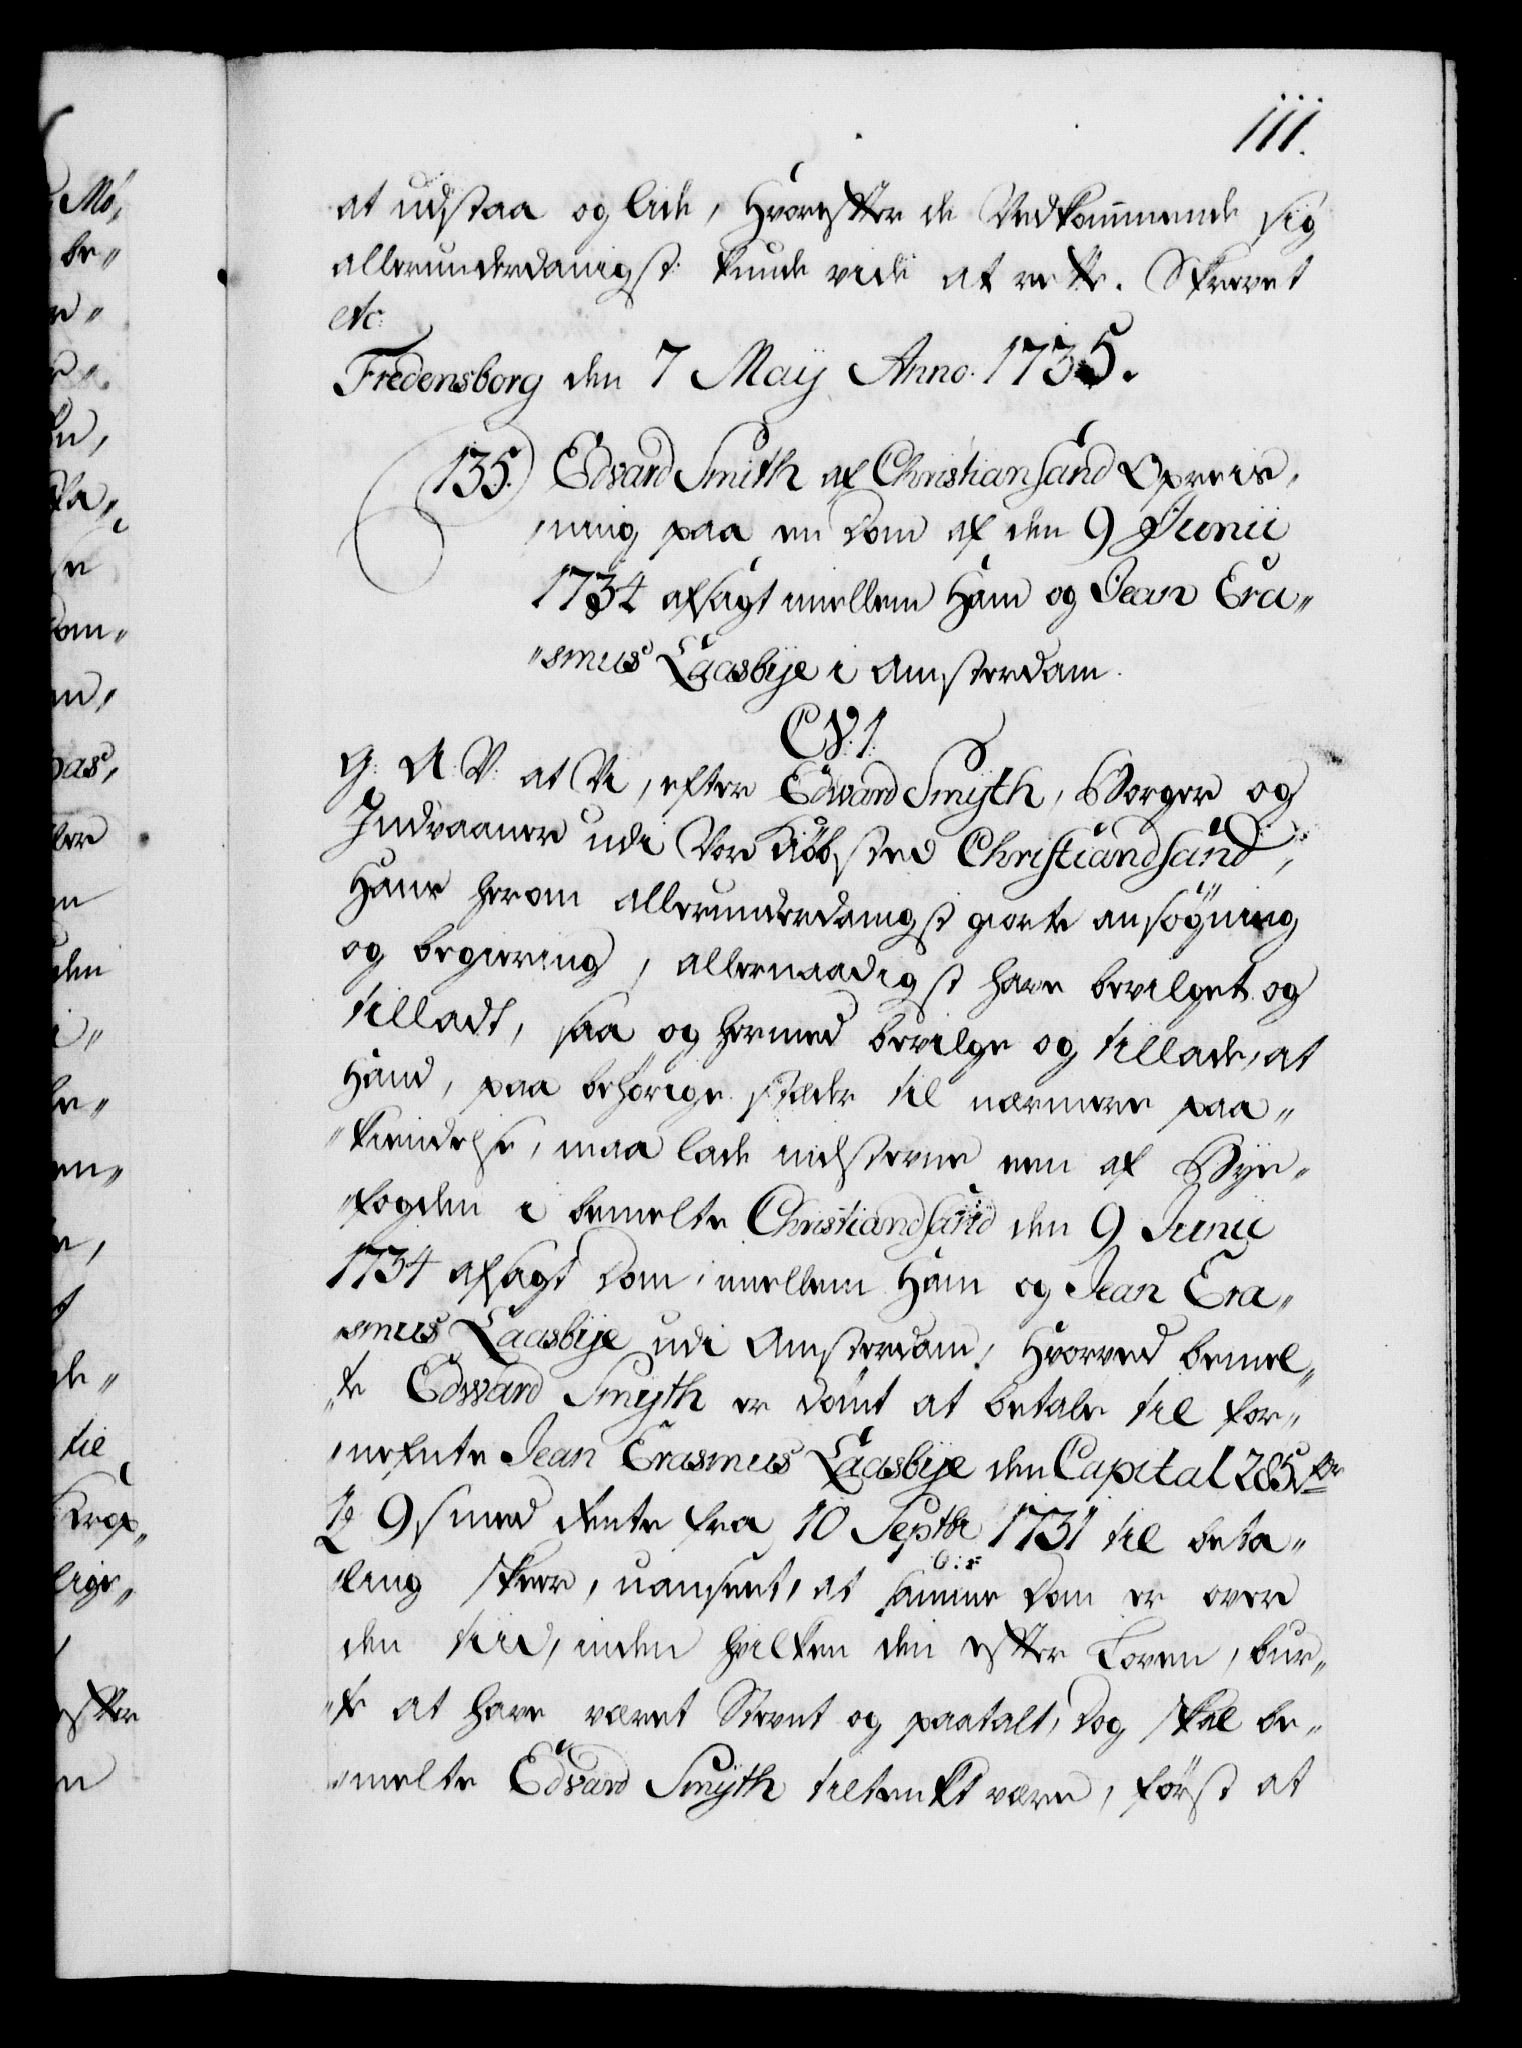 111.
at udstaa og lide, Hvorefter de Vedkommende sig
allerunderdanigst kunde vide at rette. Skrevet
etc:
Fredensborg den 7 Maij Anno. 1735.
135. Edvard Smith af Christiansand Opreis,
,ning paa en Dom af den 9 Junii
1734 afsagt imellem Ham og Jean Era„
„smus Laasbije i Amsterdam.
C V. 1.
G: A: V: at Vi, efter Edvard Smijth, Borger og
Indvaaner udi Vor Kiöbsted Christiandsand,
Hans herom allerunderdanigst giorte ansögning
og begiering, allernaadigst have bevilget og
tilladt, saa og hermed bevilge og tillade, at
Hand, paa behörige stæder til nærmere paa„
„kiendelse, maa lade indstevne een af Bye„
„fogden i bemelte Christiandsand den 9 Junii
1734 afsagt Dom, imellem Ham og Jean Era„
„smus Laasbije udi Amsterdam, Hvorved bemel„
„te Edward Smijth er dömt at betale til for„
„nefnte Jean Erasmus Laasbije den Capital 285
9 s med Rente fra 10 Septbr 1731 til beta„
„ling skeer, uanseet, at samme Dom er over
den tiid, inden hvilken den efter Loven, bur„
„te at have været Stevnt og paatalt, Dog skal be„
„melte Edvard Smijth tiltenkt være, först at
„Mö,
be„
til
efter